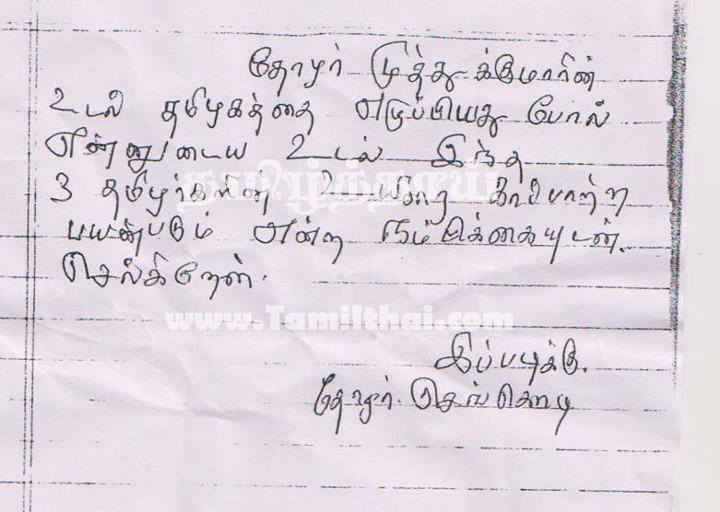 தோழர் முத்துக்குமாரின்
உடல் தமிழகத்தை எழுப்பியது போல்
என்னுடைய உடல் இந்த
தமிழ்த்தாய்
3 தமிழர்களின் உயிரை காப்பாற்ற
பயன்படும் என்ற நம்பிக்கையுடன்.
செல்கிறேன்.
www.Tamilthai.com
இப்படிக்கு.
தோழர். செங்கொடி